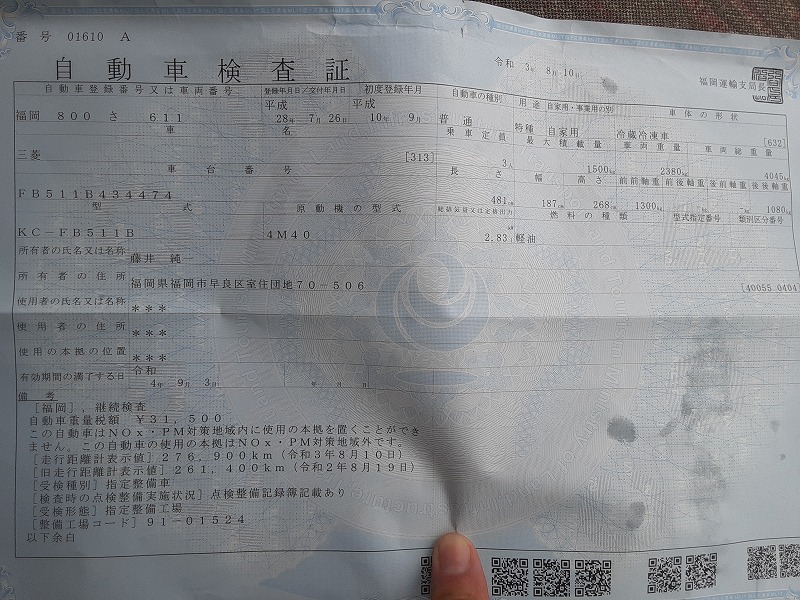 番号 01610 A
令和 3年 8月10日
自動車検査証
福岡運輸支局長
自動車登録番号又は車両番号 登録年月日/交付年月日 初度登録年月 自動車の種別 用途 自家用・事業用の別 車体の形状
福岡 800 さ 611 平成 28年 7月26日 平成 10年 9月 普通 特種 自家用 冷蔵冷凍車 [632]
車名 乗車定員 最大積載量 車両重量 車両総重量
三菱 [313] 3人 1500kg 2380kg 4045kg
車台番号 長さ 幅 高さ 前前軸重 前後軸重 後前軸重 後後軸重
FB511B434474 481cm 187cm 268cm 1300kg 1080kg
型式 原動機の型式 総排気量又は定格出力 燃料の種類 型式指定番号 類別区分番号
KC-FB511B 4M40 kW 2.83L 軽油
所有者の氏名又は名称 藤井 純一
所有者の住所 福岡県福岡市早良区室住団地70-506 [40055 0404]
使用者の氏名又は名称 ***
使用者の住所 ***
使用の本拠の位置 ***
有効期間の満了する日 令和 4年 9月 3日 年 月 日
備考
[福岡],継続検査
自動車重量税額 ¥31,500
この自動車はNOx・PM対策地域内に使用の本拠を置くことができ
ません。この自動車の使用の本拠はNOx・PM対策地域外です。
[走行距離計表示値]276,900km(令和3年8月10日)
[旧走行距離計表示値]261,400km(令和2年8月19日)
[受検種別]指定整備車
[検査時の点検整備実施状況]点検整備記録簿記載あり
[受検形態]指定整備工場
[整備工場コード]91-01524
以下余白